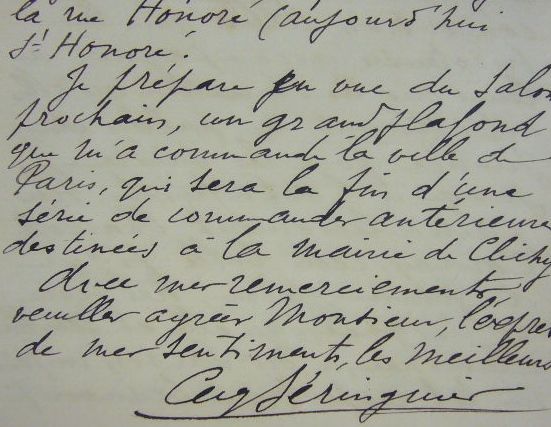 la rue Honoré (aujourd'hui
St Honoré.
Je prépare en vue du Salon
prochain, un grand plafond
que m'a commandé la ville de
Paris, qui sera la fin d'une
série de commandes antérieures
destinées à la mairie de Clichy
Avec mes remerciements
veuillez agréer Monsieur, l'expres
de mes sentiments, les meilleurs
Eug Séringuier